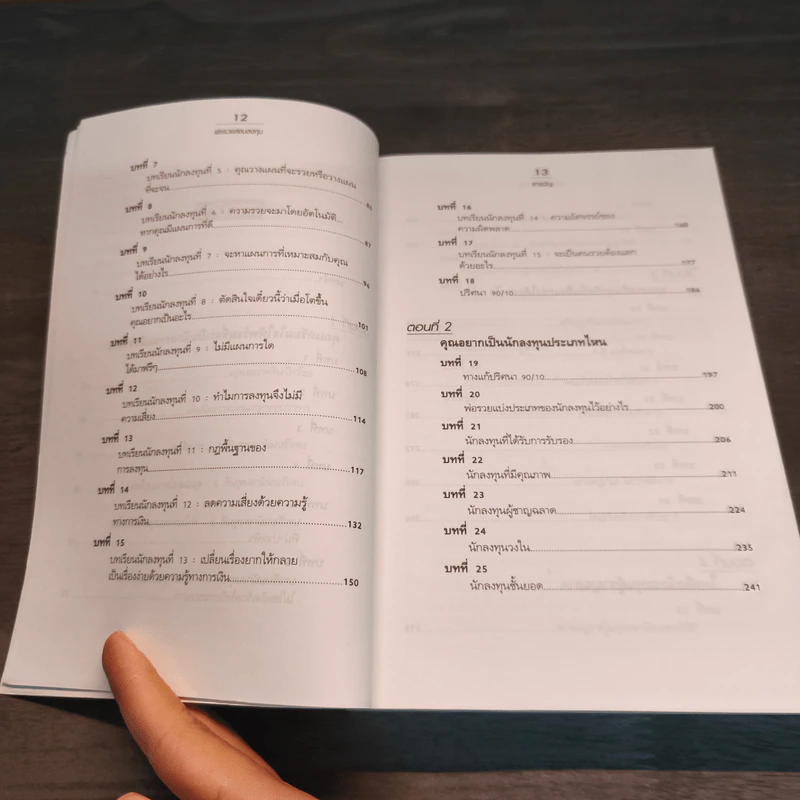 12
พ่อรวยสอนลงทุน
บทที่ 7
บทเรียนนักลงทุนที่ 5 : คุณวางแผนที่จะรวยหรือวางแผน
ที่จะจน
บทที่ 8
บทเรียนนักลงทุนที่ 6 : ความรวยจะมาโดยอัตโนมัติ...
หากคุณมีแผนการที่ดี 87
บทที่ 9
บทเรียนนักลงทุนที่ 7 : จะหาแผนการที่เหมาะสมกับคุณ
ได้อย่างไร 94
บทที่ 10
บทเรียนนักลงทุนที่ 8 : ตัดสินใจเดี๋ยวนี้ว่าเมื่อโตขึ้น
คุณอยากเป็นอะไร 101
บทที่ 11
บทเรียนนักลงทุนที่ 9 : ไม่มีแผนการใด
ได้มาฟรีๆ 108
บทที่ 12
บทเรียนนักลงทุนที่ 10 : ทำไมการลงทุนจึงไม่มี
ความเสี่ยง 114
บทที่ 13
บทเรียนนักลงทุนที่ 11 : กฎพื้นฐานของ
การลงทุน 117
บทที่ 14
บทเรียนนักลงทุนที่ 12 : ลดความเสี่ยงด้วยความรู้
ทางการเงิน 132
บทที่ 15
บทเรียนนักลงทุนที่ 13 : เปลี่ยนเรื่องยากให้กลาย
เป็นเรื่องง่ายด้วยความรู้ทางการเงิน 150
13
สารบัญ
บทที่ 16
บทเรียนนักลงทุนที่ 14 : ความอัศจรรย์ของ
ความผิดพลาด 168
บทที่ 17
บทเรียนนักลงทุนที่ 15 : จะเป็นคนรวยต้องแลก
ด้วยอะไร 177
บทที่ 18
ปริศนา 90/10 184
ตอนที่ 2
คุณอยากเป็นนักลงทุนประเภทไหน
บทที่ 19
ทางแก้ปริศนา 90/10 197
บทที่ 20
พ่อรวยแบ่งประเภทของนักลงทุนไว้อย่างไร 200
บทที่ 21
นักลงทุนที่ได้รับการรับรอง 206
บทที่ 22
นักลงทุนที่มีคุณภาพ 211
บทที่ 23
นักลงทุนผู้ชาญฉลาด 224
บทที่ 24
นักลงทุนวงใน 235
บทที่ 25
นักลงทุนชั้นยอด 241